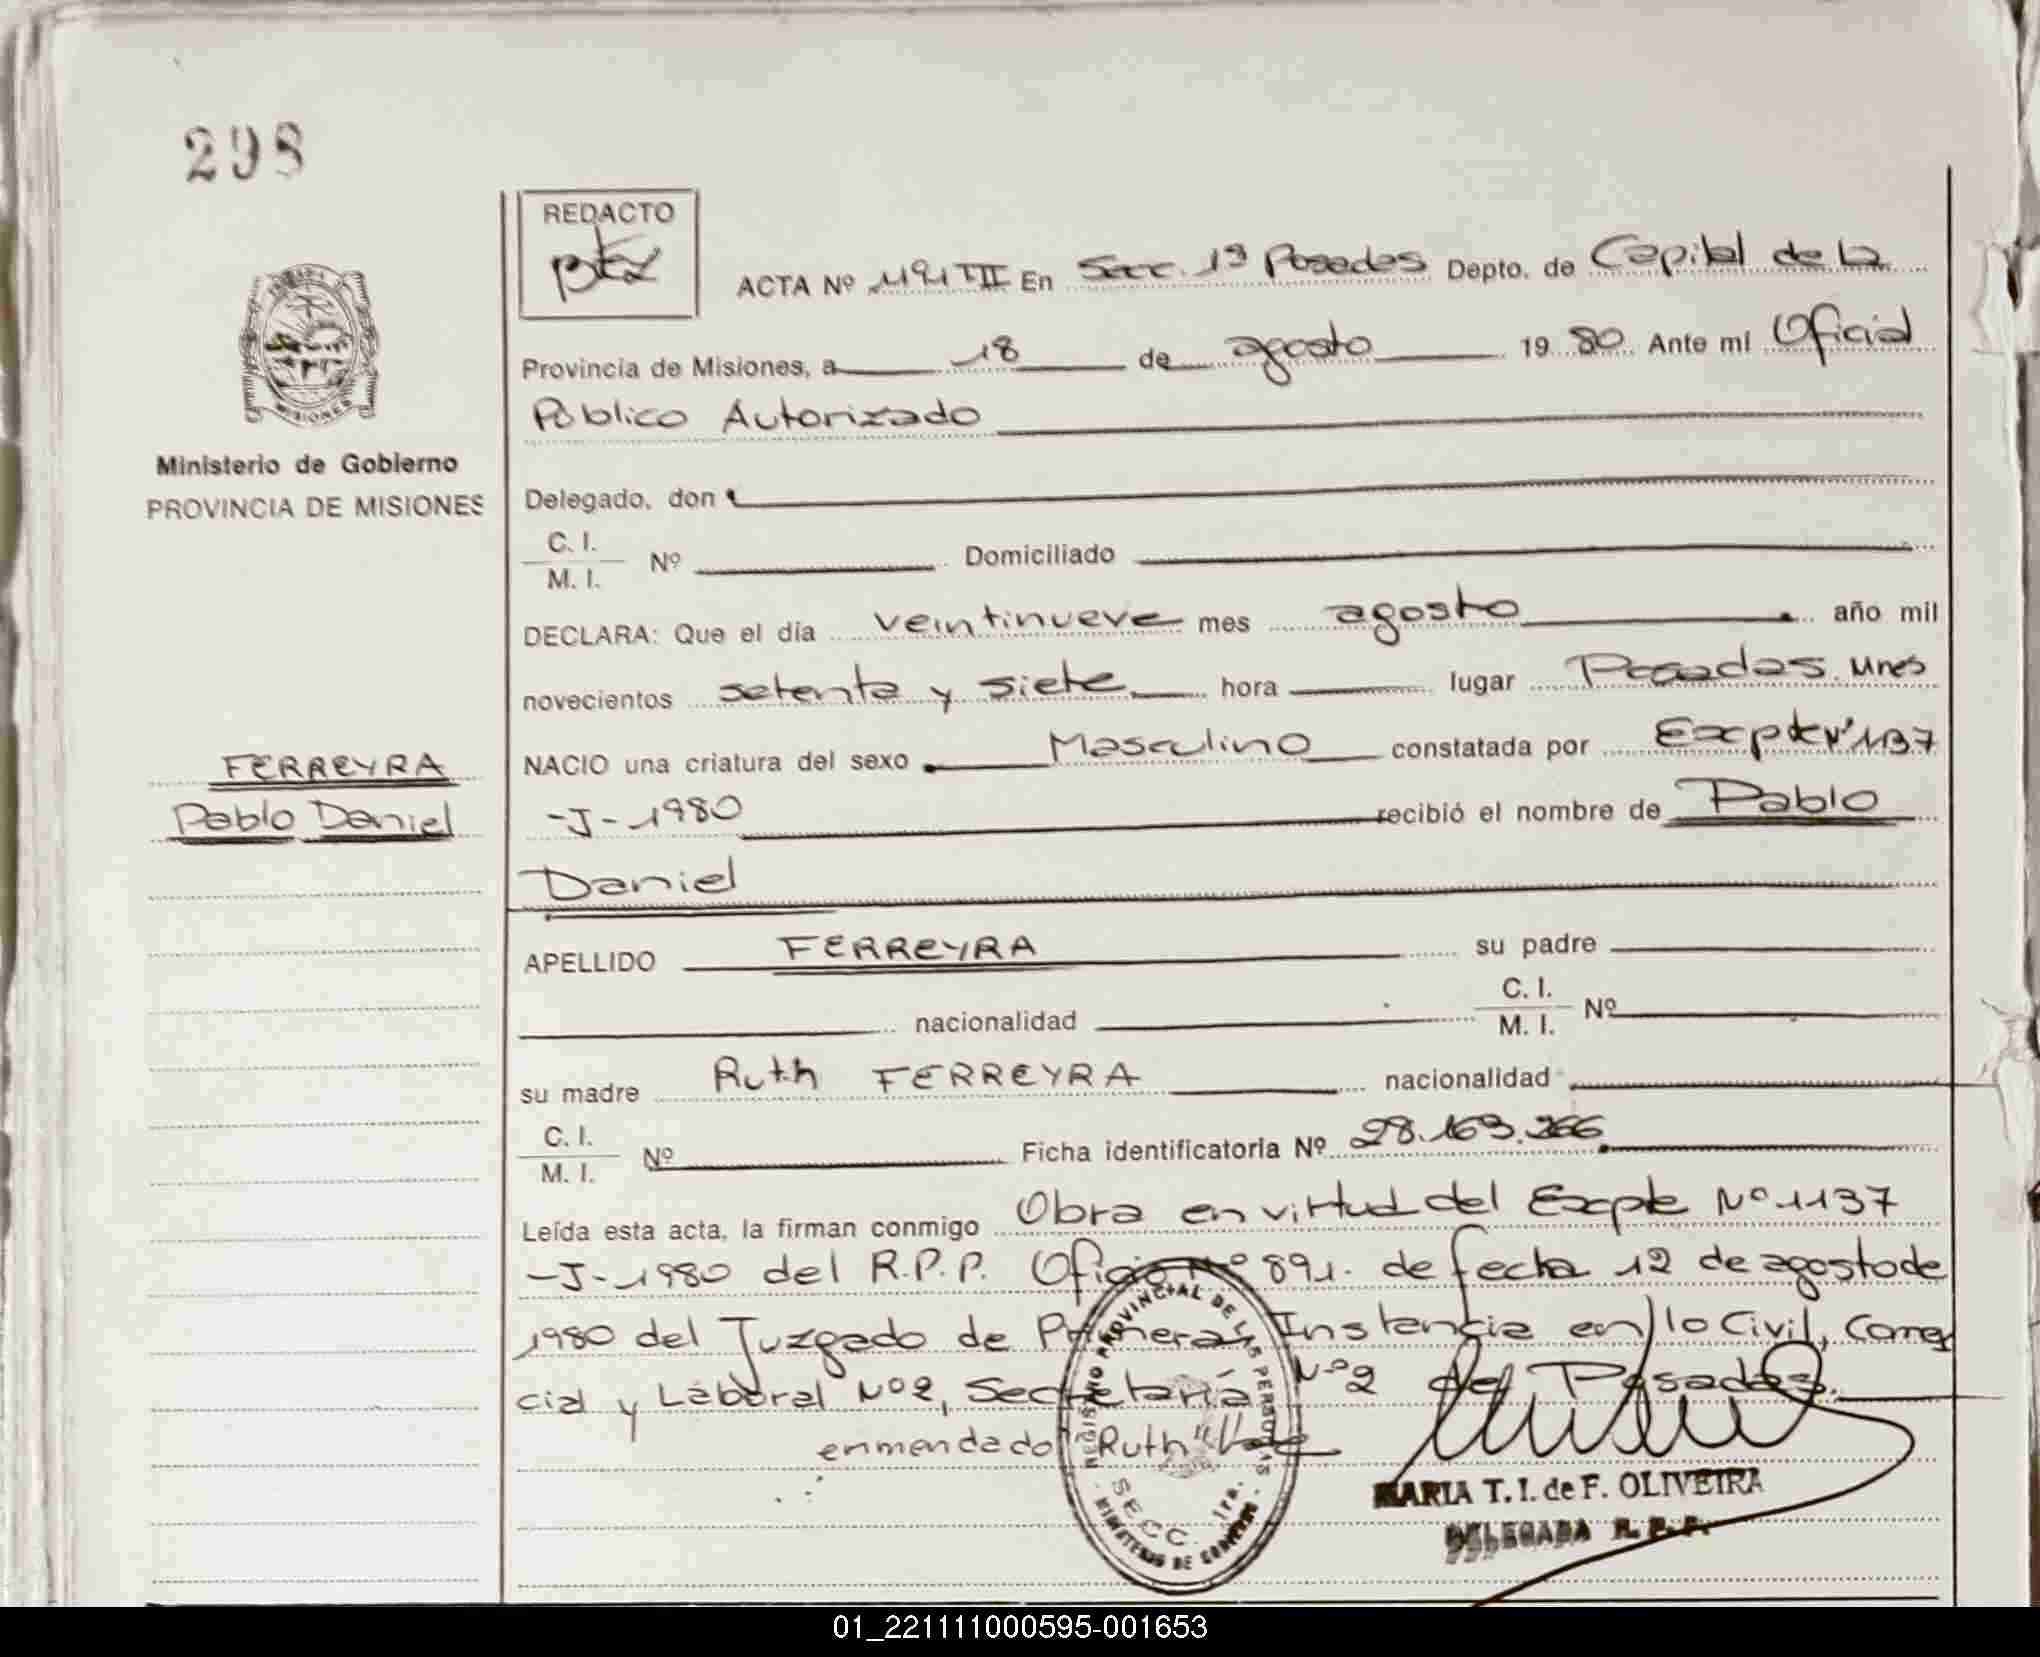 298
REDACTO
ACTA Nº 1191 TII En Secc. 1ª Posadas Depto. de Capital de la
Provincia de Misiones, a 18 de agosto 1980 Ante mí Oficial
Público Autorizado
Ministerio de Gobierno
PROVINCIA DE MISIONES
MISIONES
Delegado, don
C. I.
M. I. Nº Domiciliado
DECLARA: Que el día veintinueve mes agosto año mil
novecientos setenta y siete hora lugar Posadas. Mnes
FERREYRA
Pablo Daniel
NACIO una criatura del sexo Masculino constatada por Expte Nº 1137
-J-1980 recibió el nombre de Pablo
Daniel
APELLIDO FERREYRA su padre
nacionalidad C. I.
M. I. Nº
su madre Ruth FERREYRA nacionalidad
C. I.
M. I. Nº Ficha identificatoria Nº 28.163.266
Leída esta acta, la firman conmigo Obra en virtud del Expte Nº 1137
-J-1980 del R.P.P. Oficio Nº 891. de fecha 12 de agosto de
1980 del Juzgado de Primera Instancia en lo Civil, Comer
cial y Laboral Nº 2, Secretaría Nº 2 de Posadas.
enmendado "Ruth" Vale
REGISTRO PROVINCIAL DE LAS PERSONAS
SECC. 1ra.
MINISTERIO DE GOBIERNO
MARIA T. I. de F. OLIVEIRA
DELEGADA R. P. P.
01_221111000595-001653